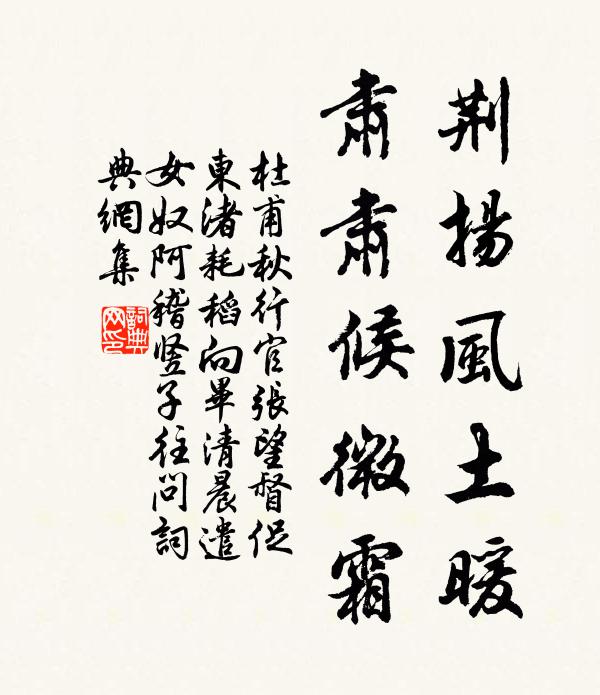 荆揚風土暖
肅肅候微霜
杜甫秋行官張望督促
東渚耗稻向畢清晨遣
女奴阿稽竖子往問詞
典網集
詞典
网印